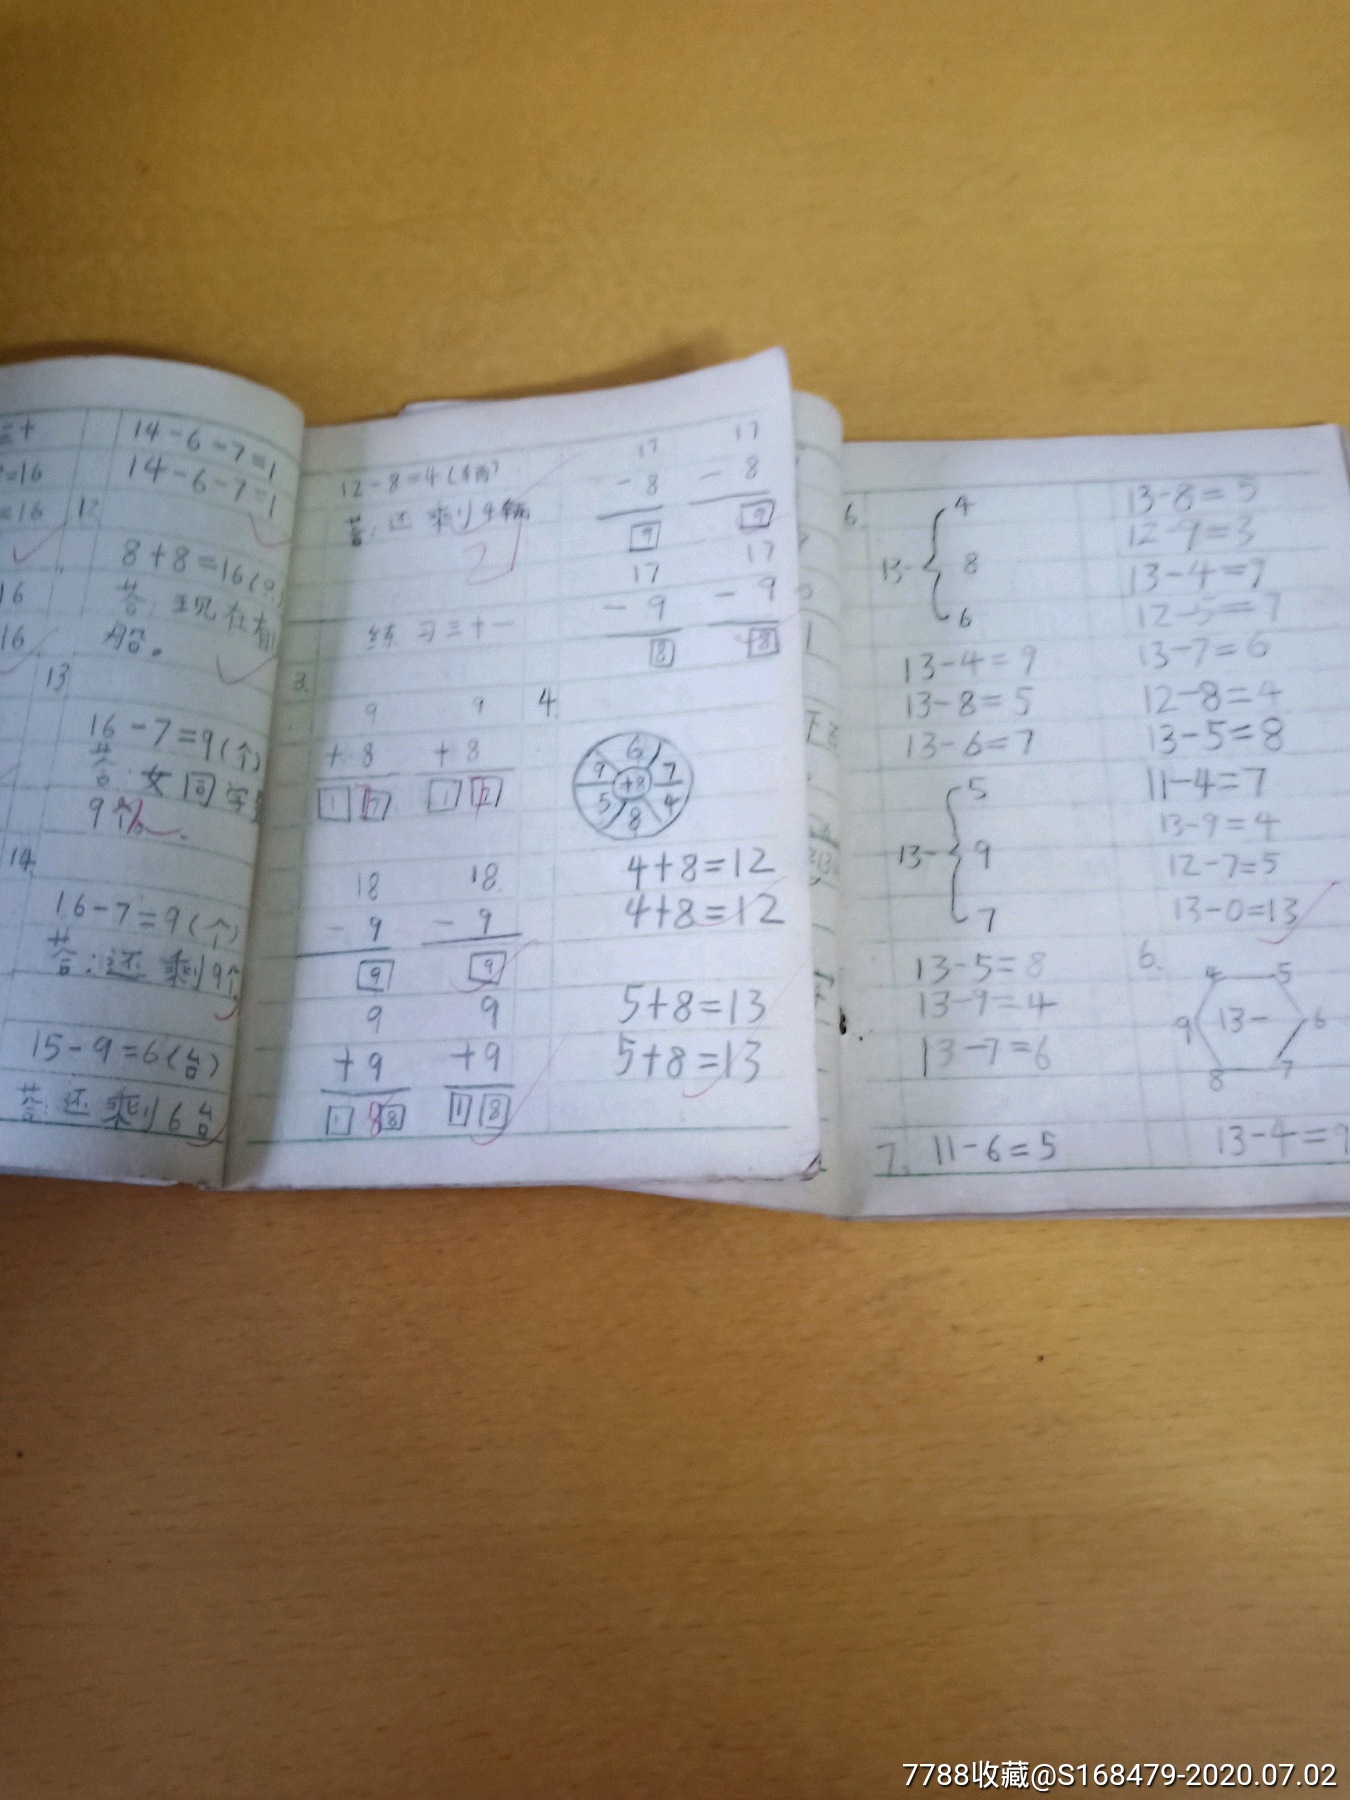 三十
=16
=16
16
16
14-6-7=1
14-6-7=1
12
8+8=16(
答:现在有
船。
13
16-7=9(个)
答:女同学
9个。
14.
16-7=9(个)
答:还剩9个
15-9=6(台)
答:还剩6台
12-8=4(辆)
答:还剩4辆
练习三十一
3.
9 9
+8 +8
1 7 1 7
18 18
-9 -9
9 9
9 9
+9 +9
1 8 1 8
17 17
-8 -8
9 9
17 17
-9 -9
8 8
4.
6
9 7
+8
5 4
8
4+8=12
4+8=12
5+8=13
5+8=13
6
4
13- 8
6
13-4=9
13-8=5
13-6=7
5
13- 9
7
13-5=8
13-9=4
13-7=6
7. 11-6=5
13-8=5
12-9=3
13-4=9
12-5=7
13-7=6
12-8=4
13-5=8
11-4=7
13-9=4
12-7=5
13-0=13
6.
4 5
9 13- 6
8 7
13-4=9
7788收藏@S168479-2020.07.02